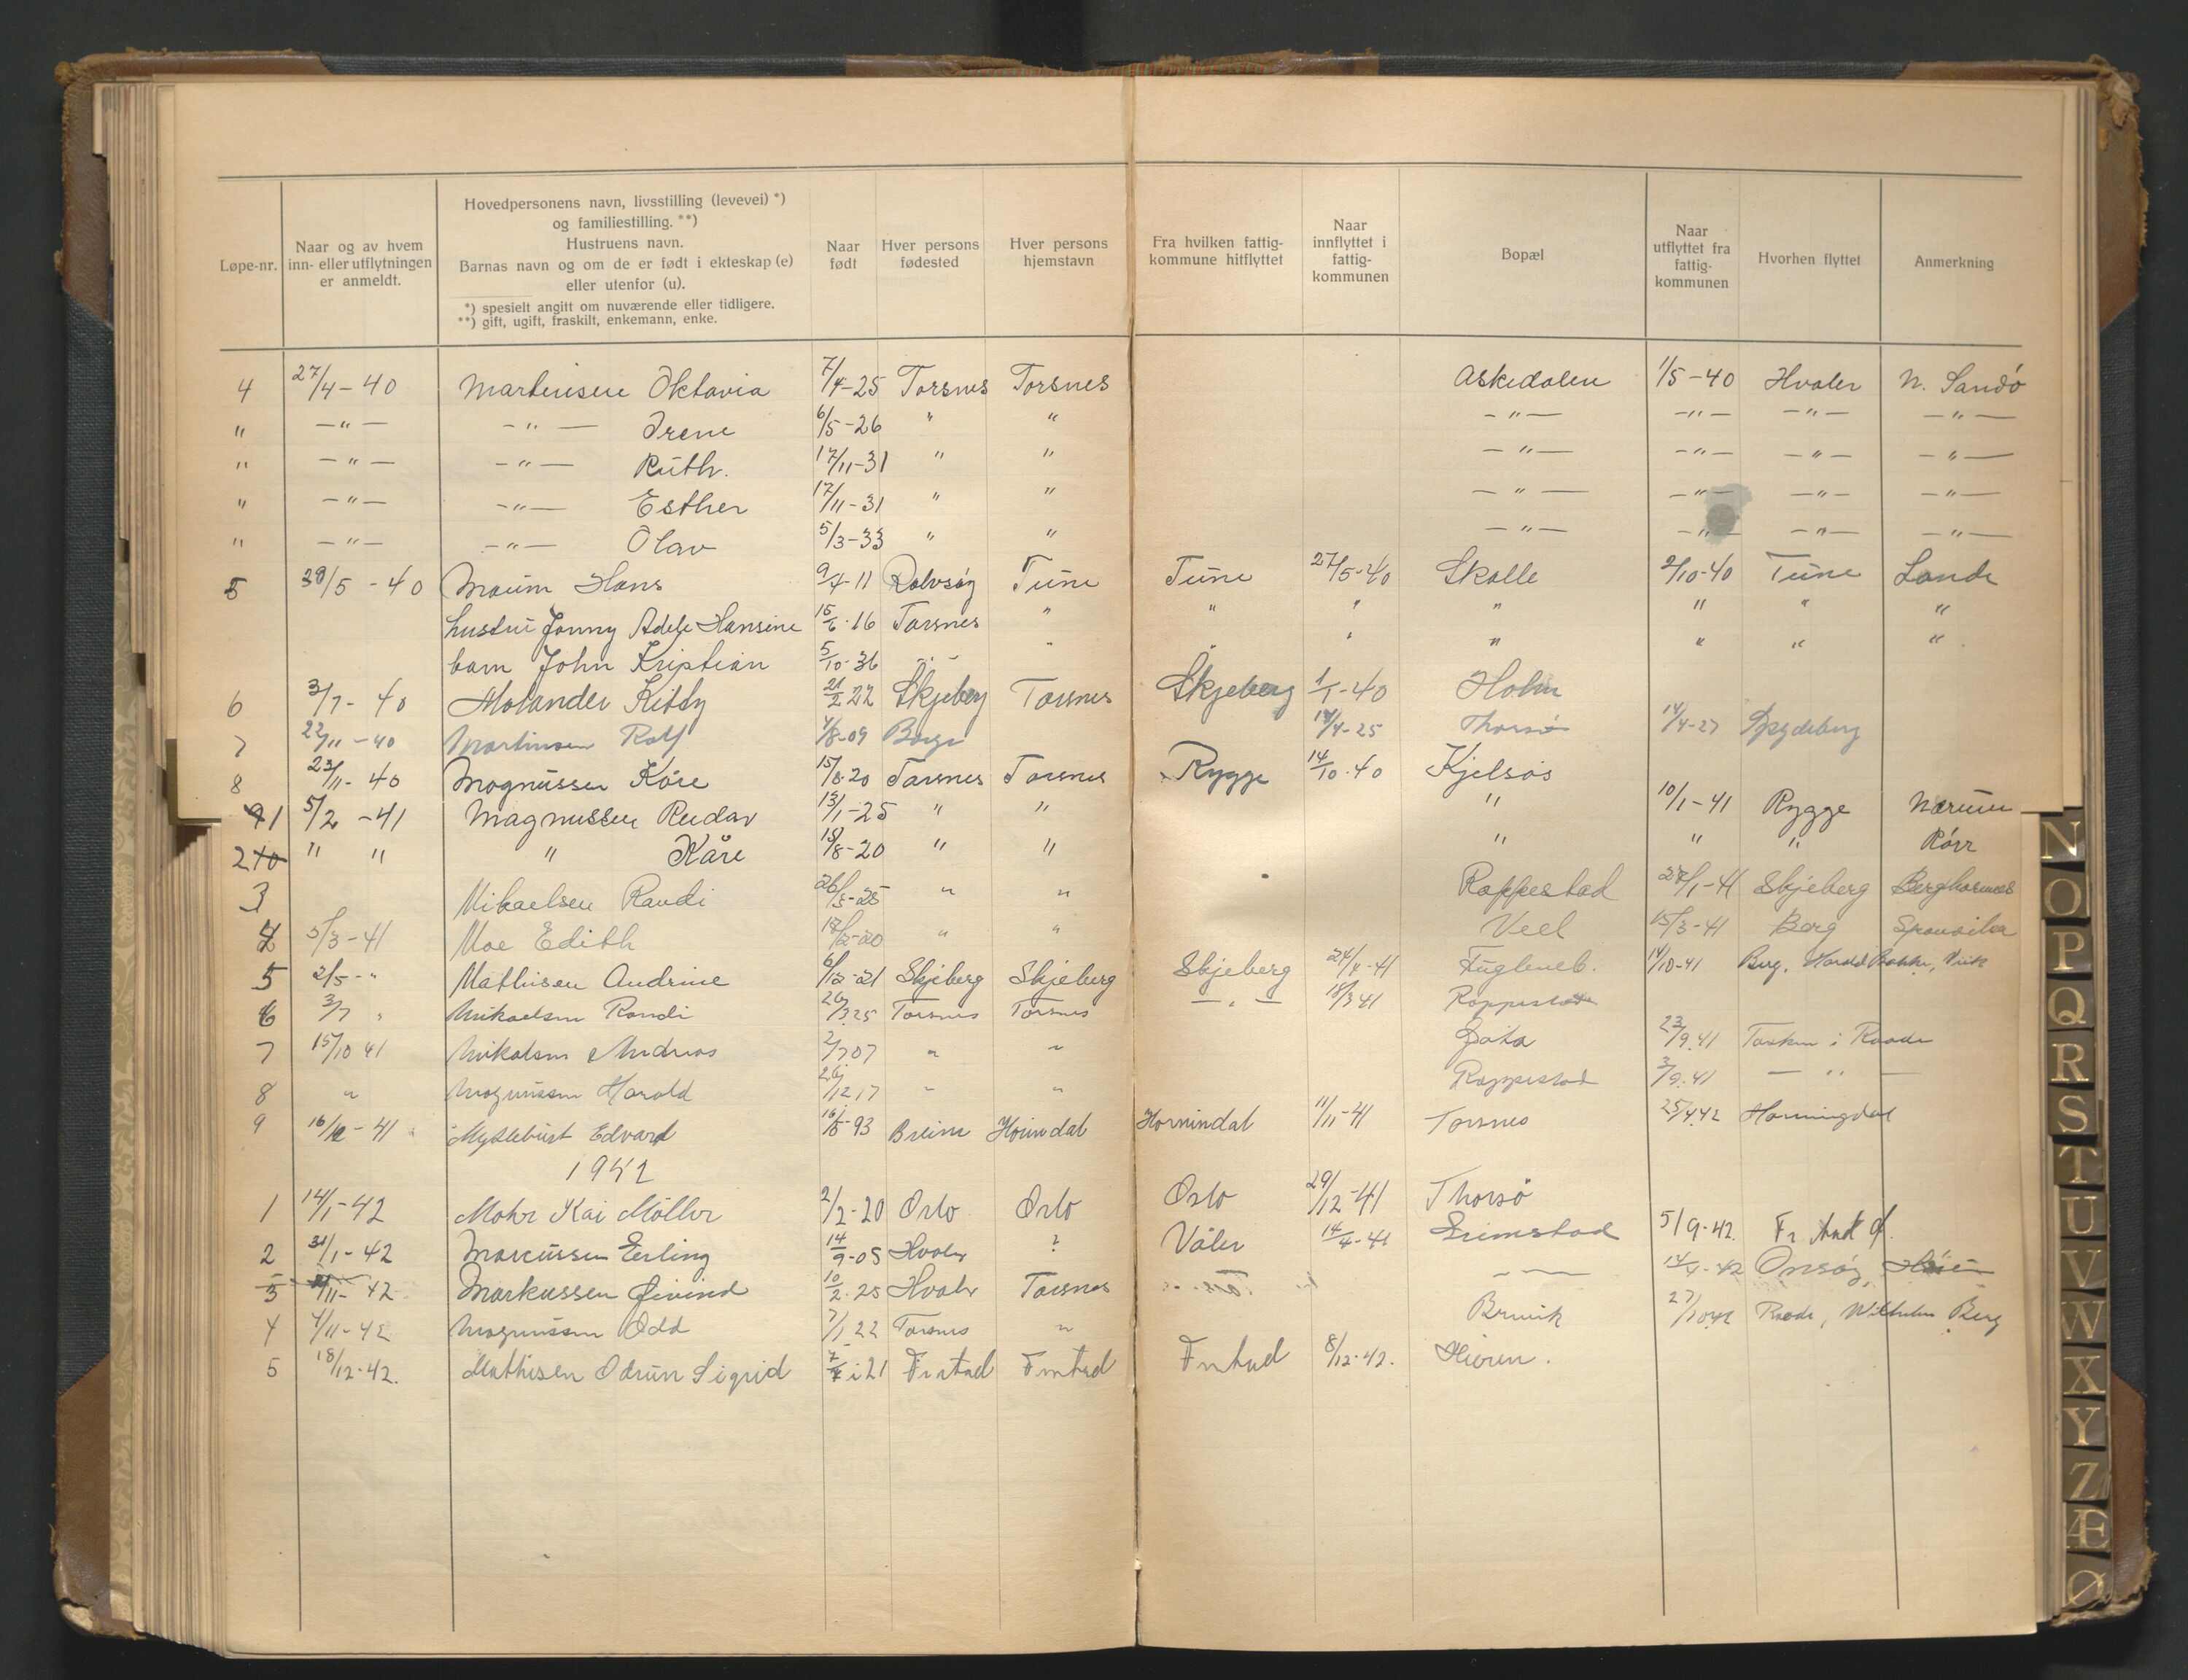 Løpe-nr.
Naar og av hvem inn- eller utflytningen er anmeldt.
Hovedpersonens navn, livsstilling (levevei) *) og familiestilling. **)
Hustruens navn.
Barnas navn og om de er født i ekteskap (e) eller utenfor (u).
*) spesielt angitt om nuværende eller tidligere.
**) gift, ugift, fraskilt, enkemann, enke.
Naar født
Hver persons fødested
Hver persons hjemstavn
Fra hvilken fattigkommune hitflyttet
Naar innflyttet i fattigkommunen
Bopæl
Naar utflyttet fra fattigkommunen
Hvorhen flyttet
Anmerkning
4 27/4-40 Martinsen Oktavia 7/4-25 Torsnes Torsnes Askedalen 1/5-40 Hvaler N. Sandö
" —"— —"— Irene 6/5-26 " " —"— —"— —"— —"—
" —"— —"— Ruth. 17/11-31 " " —"— —"— —"— —"—
" —"— —"— Esther 17/11-31 " " —"— —"— —"— —"—
" —"— —"— Olav 5/3-33 " " —"— —"— —"— —"—
5 /5-40 Maum Hans 9/4-11 Rolvsøy Tune Tune 27/5-40 Skolle 2/10-40 Tune Lande
hustru Jenny Adele Hansine 15/6-16 Torsnes " " " " " " "
barn John Kristian 5/10-36 -"- " " " " " " "
6 3/7-40 Molander Kitty 21/2 22 Skjeberg Torsnes Skjeberg 1/1-40 Holm
7 22/11-40 Martinsen Rolf 4/8-09 Borge 14/4-25 Thorsø 14/4-27 Spydeberg
8 23/11-40 Magnussen Kåre 15/8-20 Torsnes Torsnes Rygge 14/10-40 Kjelsøs
91 5/2-41 Magnussen Reidar 13/1-25 " " " 10/1-41 Rygge Nærum
210 " " " Kåre 15/8-20 " " " " " Rörr
3 Mikaelsen Randi 26/3-25 " " Rappestad 27/1-41 Skjeberg
4 5/3-41 Moe Edith 18/2-20 " " Veel 15/3-41 Borg Sponvika
5 2/5-" Mathisen Andrine 6/12-21 Skjeberg Skjeberg Skjeberg 24/4-41 Fugleneb. 14/10-41 Berg, Harald Bakke, Viik
6 3/7 " Mikaelsen Randi 26/3 25 Torsnes Torsnes —"— 18/3 41 Rappestad
7 15/10 41 Mikalsen Andreas 2/7 07 " " Gata 23/9.41 i Raade
8 " Magnussen Harald 26/12 17 " " Rappestad 3/9.41 — " —
9 16/12-41 Myklebust Edvard 16/5-93 Breim Hornindal Hornindal 11/11-41 Torsnes 25/4.42 Horningdal
1942
1 14/1-42 Mohr Kai Möller 2/2-20 Oslo Oslo Oslo 29/12-41 Thorsö
2 31/1-42 Marcussen Erling 14/9-05 Hvaler ? Våler 14/4-41 Grimstad 5/9-42. Fr.stad
3 /11-42 Markussen Øivind 10/2-25 Hvaler Torsnes — — 14/4-42 Onsøy,
4 4/11-42 Magnussen Odd 7/1 22 Torsnes " Brevik 27/10 42 Raade, Wilhelm Berg
5 18/12-42. Mathisen Odrun Sigrid 21 Fr.stad Fr.stad Fr.stad 8/12-42.
N
O
P
Q
R
S
T
U
V
W
X
Y
Z
Æ
Ø